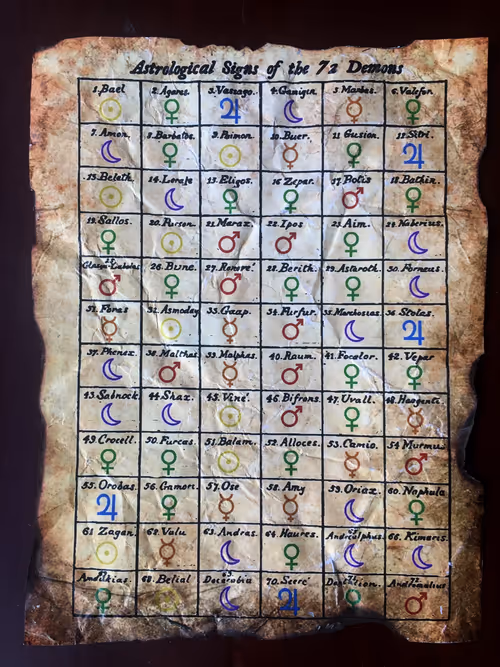 Astrological Signs of the 72 Demons
1. Bael 2. Agares. 3. Vassago. 4. Gamigin. 5. Marbas. 6. Valefor.
7. Amon. 8. Barbatos. 9. Paimon. 10. Buer. 11 Gusion. 12. Sitri.
13. Beleth. 14. Leraje 15. Eligos. 16 Zepar. 17. Botis 18. Bathin.
19. Sallos. 20. Purson. 21. Marax. 22. Ipos 23. Aim. 24 Naberius.
25 Glasya-Labolas 26. Bune. 27. Ronove'. 28. Berith. 29. Astaroth. 30. Forneus.
31. Foras 32. Asmoday 33. Gaap. 34. Furfur. 35. Marchosias. 36 Stolas.
37. Phenex. 38. Malthas. 39. Malphas. 40. Raum. 41. Focalor. 42. Vepar
43. Sabnock. 44. Shax. 45. Vine'. 46. Bifrons. 47. Uvall. 48. Haagenti.
49. Crocell. 50. Furcas. 51. Balam. 52. Alloces. 53. Camio. 54 Murmus
55. Orobas. 56. Gamori. 57. Ose 58. Amy 59. Oriax. 60. Naphula
61. Zagan. 62. Valu 63. Andras. 64. Haures. 65 Andrealphus. 66. Kimaris.
67 Amdukias. 68. Belial 69. Decarabia 70. Seere' 71. Dantalion. 72 Andromalius